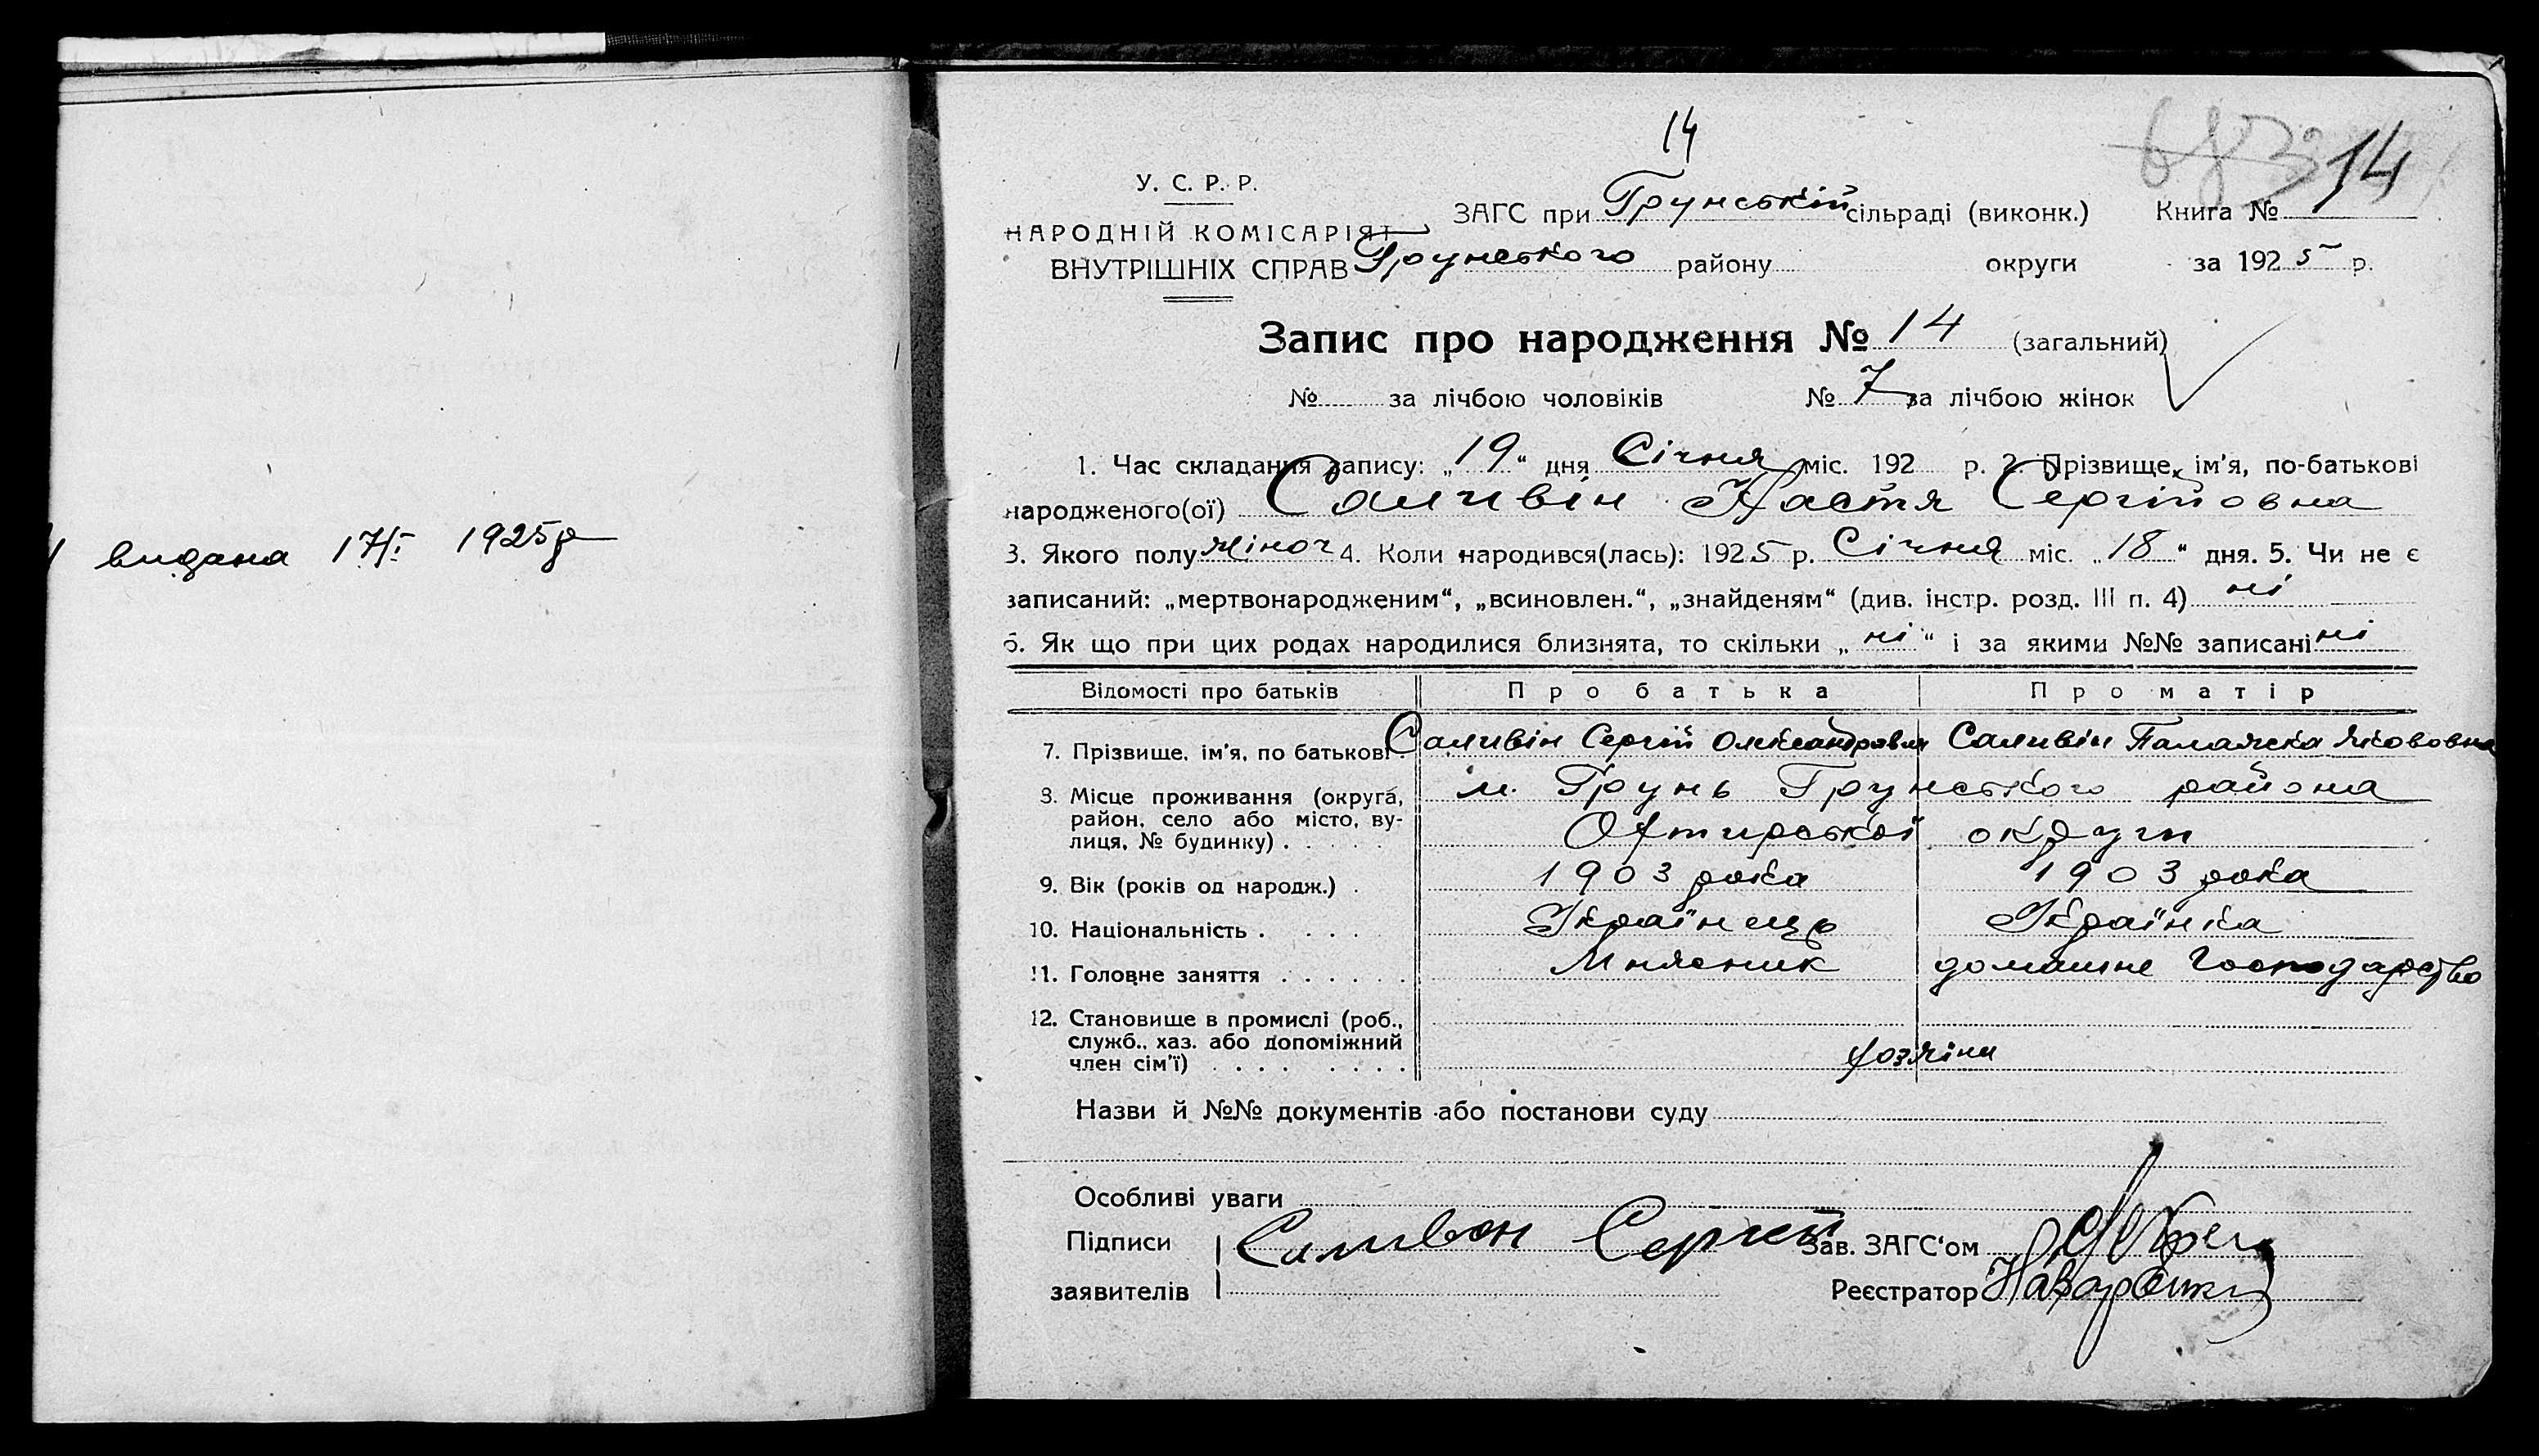 видана 17/I 1925 р
14
14
У. С. Р. Р.
НАРОДНІЙ КОМІСАРІЯТ
ВНУТРІШНІХ СПРАВ
ЗАГС при Грунській сільраді (виконк.) Книга №
Грунського району округи за 1925 р.
Запис про народження № 14 (загальний)
№ за лічбою чоловіків № 7 за лічбою жінок
1. Час складання запису: „19" дня Січня міс. 192 р. 2. Прізвище, ім'я, по-батькові
народженого(ої) Саливін Настя Сергійовна
3. Якого полу жіноч 4. Коли народився(лась): 1925 р. Січня міс. „18" дня. 5. Чи не є
записаний: „мертвонародженим", „всиновлен.", „знайденям" (див. інстр. розд. III п. 4) ні
6. Як що при цих родах народилися близнята, то скільки „ні" і за якими №№ записані ні
Відомості про батьків Про батька Про матір
7. Прізвище, ім'я, по батькові Саливін Сергій Саливін Палажка Якововна
8. Місце проживання (округа, м. Грунь Грунського района
район, село або місто, ву-
лиця, № будинку) . . . . . Охтирської округи
9. Вік (років од народж.) . 1903 рока 1903 рока
10. Національність . . . . Українець Українка
11. Головне заняття . . . . . . домашне Господарство
12. Становище в промислі (роб.,
служб., хаз. або допоміжний
член сім'ї) . . . . . . . .
Назви й №№ документів або постанови суду
Особливі уваги
Підписи Саливон Сергей Зав. ЗАГС'ом
заявителів Реєстратор